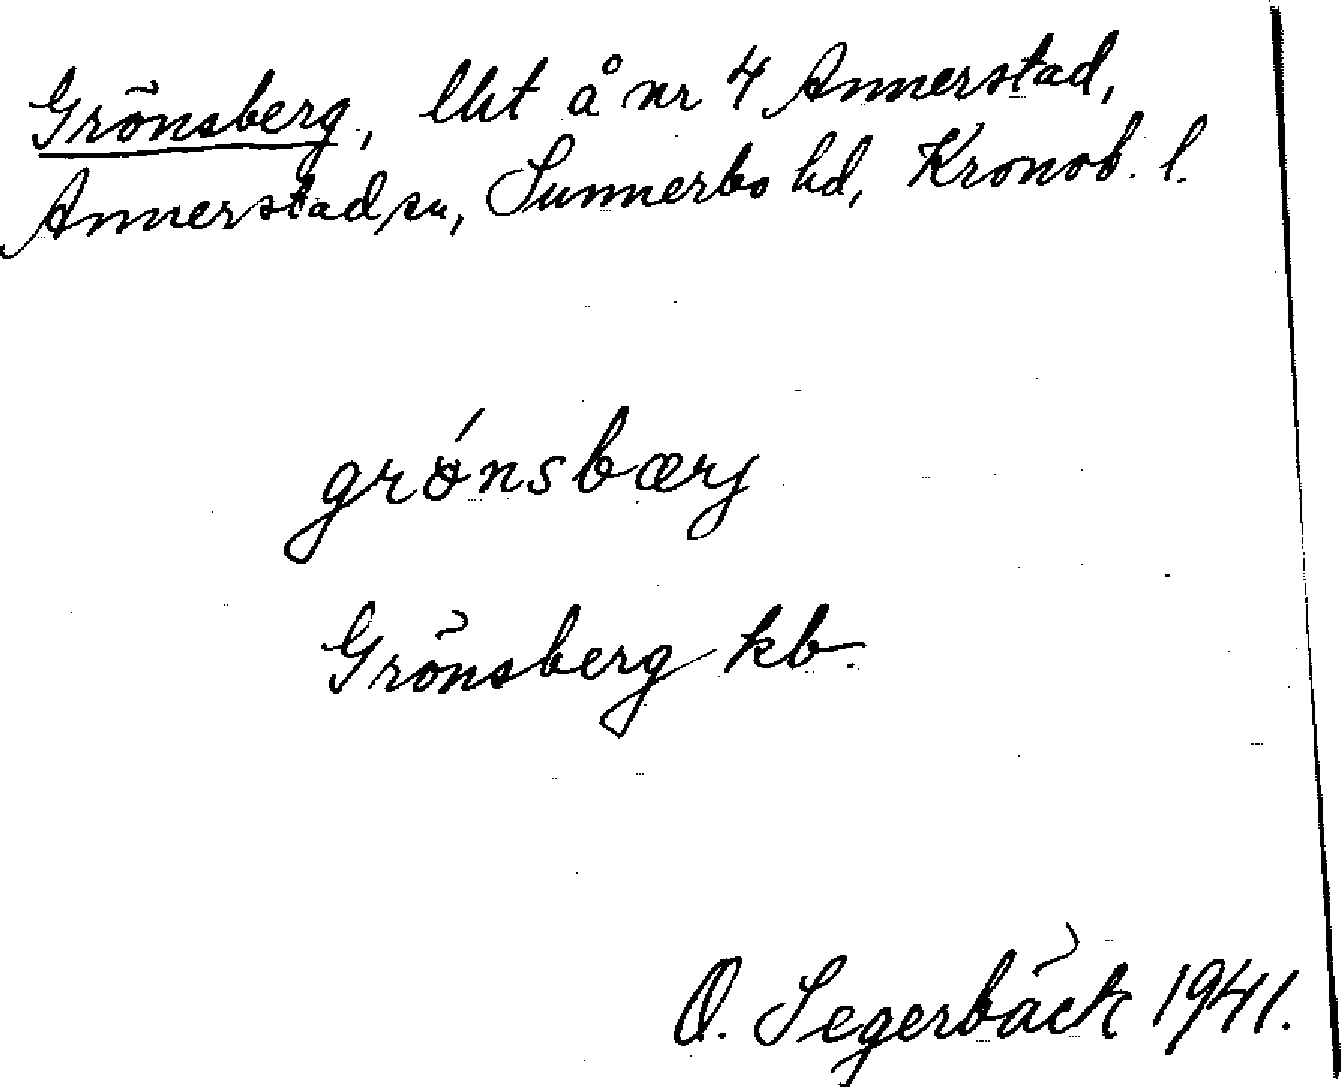 Grönsberg, lht å nr 4 Annerstad,
Annerstad sn, Sunnerbo hd, Kronob. l.
grǿnsbærj
Grönsberg kb.
O. Segerbäck 1941.